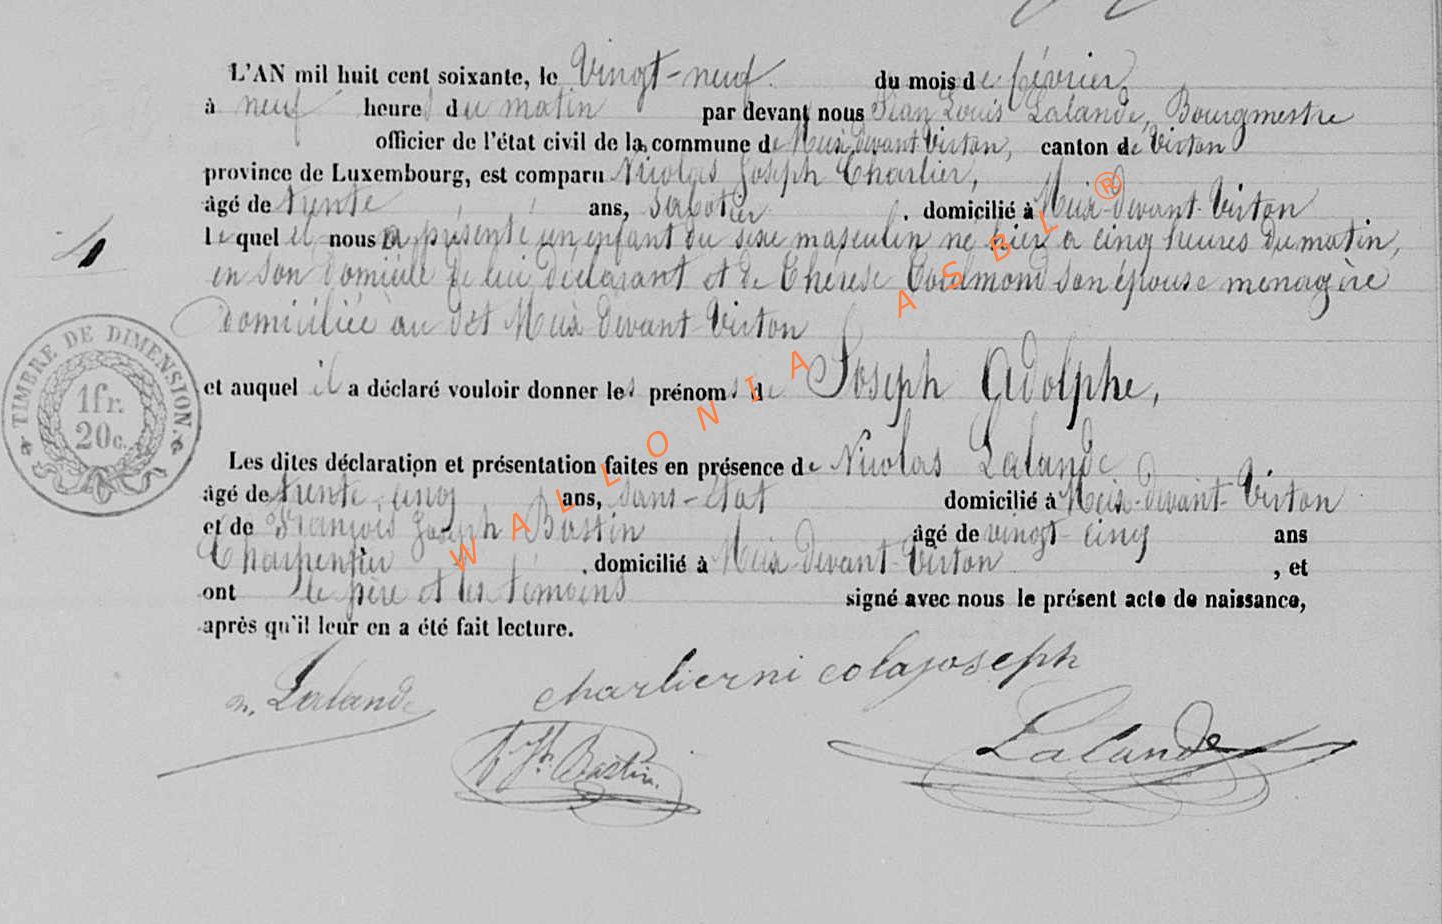 L'AN mil huit cent soixante, le Vingt-neuf du mois de février
à neuf heures du matin par devant nous Jean Louis Lalande, Bourgmestre
officier de l'état civil de la commune de Meix devant Virton, canton de Virton
province de Luxembourg, est comparu Nicolas Joseph Charlier,
âgé de trente ans, sabotier, domicilié à Meix-devant-Virton
lequel il nous a présenté un enfant du sexe masculin né hier à cinq heures du matin,
en son domicile de lui déclarant et de Thérèse son épouse menagère
domiciliée au dit Meix devant Virton
et auquel il a déclaré vouloir donner les prénoms de Joseph Adolphe,
Les dites déclaration et présentation faites en présence de Nicolas Lalande
âgé de trente cinq ans, sans-état domicilié à Meix-devant-Virton
et de François Joseph Bastin âgé de vingt-cinq ans
Charpentier, domicilié à Meix-devant-Virton, et
ont le père et les témoins signé avec nous le présent acte de naissance,
après qu'il leur en a été fait lecture.
n. Lalande charlier nicolas joseph
Bastin. Lalande
4
TIMBRE DE DIMENSION.
1fr.
20c.
WALLONIA ASBL ®